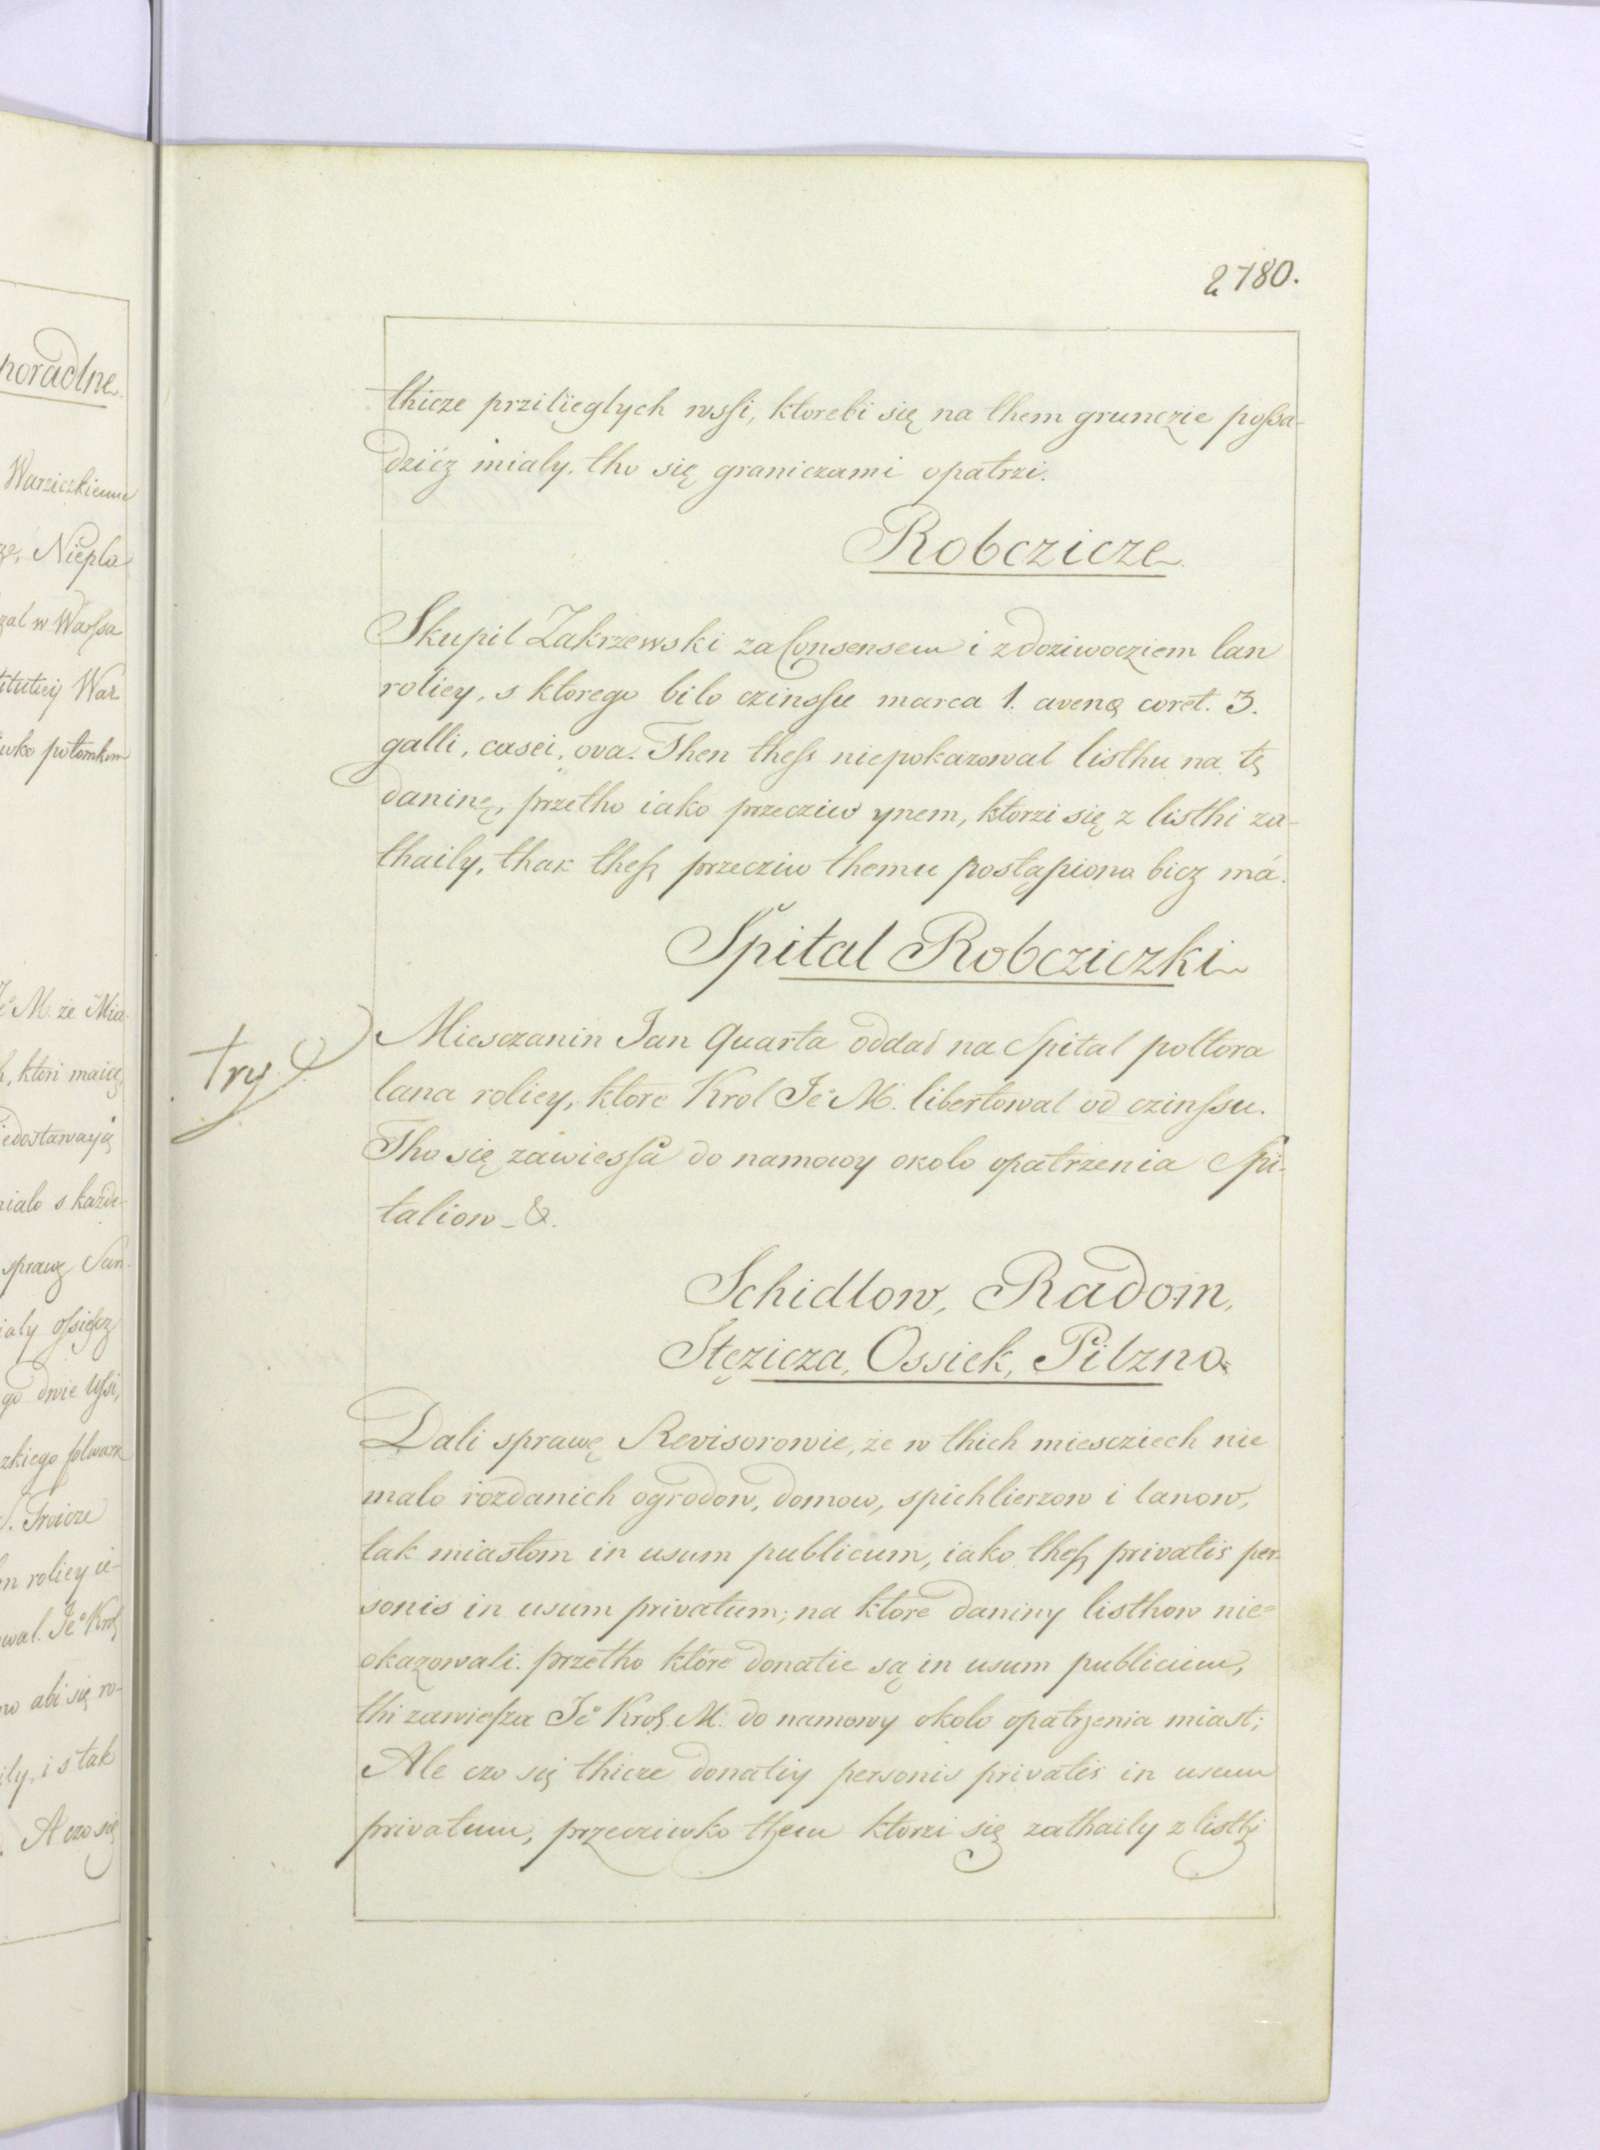 2780.
thicze przilieglych wssi, ktorebi się na them grunczie possa-
dziicz mialy, tho się graniczami opatrzi.
Robczicze
Skupil Zakrzewski za Consensem i z doziwocziem lan
roliey, s ktorego bilo czinssu marca 1. avenę coret. 3.
galli, casei, ova. Then thess niepokazowal listhu na tę
daninę, przetho iako przecziw ynem, ktorzi się z listhi za-
thaily, thak thesz przecziw themu postąpiono bicz má.
Spital Robcziczki
try
Miesczanin Jan Quarta oddal na Spital poltora
lana roliey, ktore Krol Je° M. libertowal od czinssu.
Tho się zawiessa do namowy okolo opatrzenia Spi-
taliow - &.
Schidlow, Radom,
Stęzicza, Ossiek, Pilzno
Dali sprawę Revisorowie, że w thich miescziech nie
malo rozdanich ogrodow, domow, spichlierzow i lanow,
tak miastom in usum publicum, iako thesz privatis per-
sonis in usum privatum; na ktore daniny listhow nie=
okazowali: przetho które donatie są in usum publicum,
thi zawiesza Je° Krol. M. do namowy okolo opatrzenia miast;
Ale czo się thicze donatiy personis privatis in usum
privatum, przecziwko them ktorzi się zathaily z listhi
poradlne
Warziczkiemu
Niepla
zal w Warssa
titutiey War
iwko potomkom
M. że Mia-
h, ktori maią
iedostawayą
mialo s każde-
sprawę San-
ialy ossiescz
go dwie wssi,
zkiego folwark
Troicze
n roliey ie-
wal. Je° Krol
ow abi się ro-
ily, i s tak
A czo się